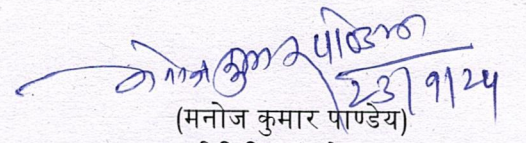 मनोज कुमार पाण्डेय
23/9/24
(मनोज कुमार पाण्डेय)